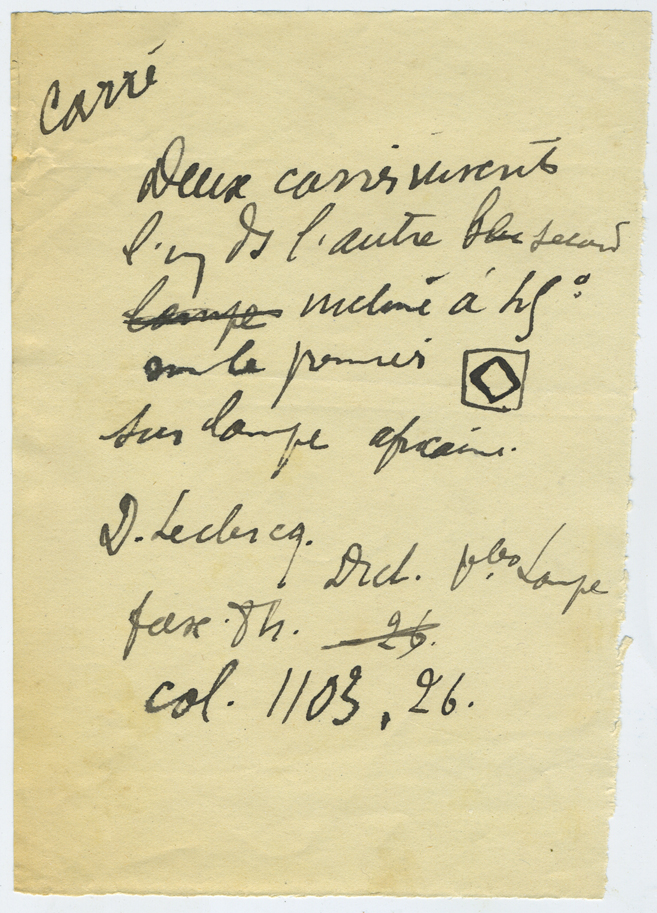 Carré
Deux carrés inscrits
l'un ds l'autre le second
lampe incliné à 45°
sur le premier
sur lampe africaine.
D. Leclercq.
Dict. Lampe
fasc. 26.
col. 1103, 26.